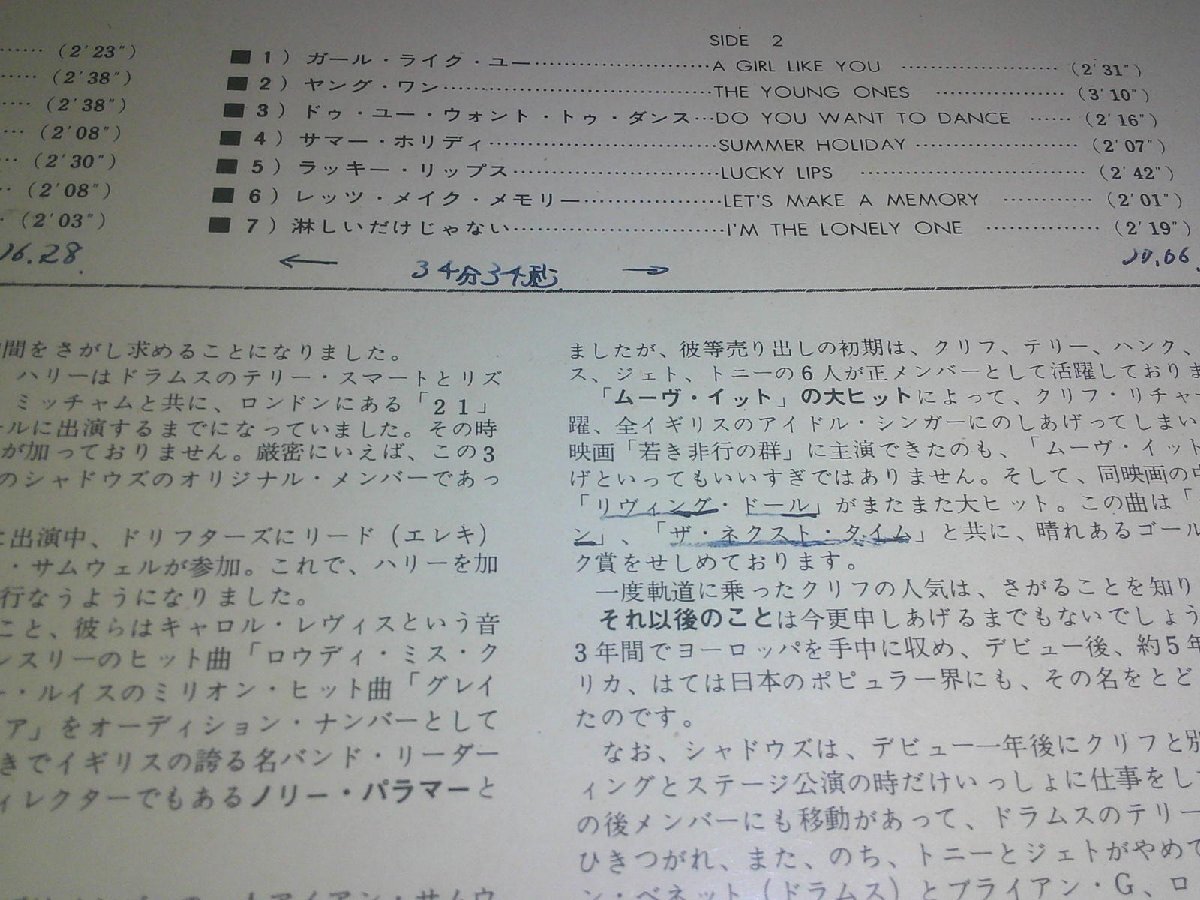 SIDE 2
(2'23")
(2'38")
(2'38")
(2'08")
(2'30")
(2'08")
(2'03")
■ 1) ガール・ライク・ユー……………………A GIRL LIKE YOU ……………………(2'31")
■ 2) ヤング・ワン……………………THE YOUNG ONES ………………(3'10")
■ 3) ドゥ・ユー・ウォント・トゥ・ダンス…DO YOU WANT TO DANCE ……(2'16")
■ 4) サマー・ホリディ……………………SUMMER HOLIDAY ……………………(2'07")
■ 5) ラッキー・リップス……………………LUCKY LIPS ……………………(2'42")
■ 6) レッツ・メイク・メモリー………………LET'S MAKE A MEMORY …………(2'01")
■ 7)淋しいだけじゃない……………………I'M THE LONELY ONE ……………(2'19")
16.28 ← 34分34秒 →
間をさがし求めることになりました。
ハリーはドラムスのテリー・スマートとリズ
ミッチャムと共に、ロンドンにある「21」
ールに出演するまでになっていました。その時
が加っておりません。厳密にいえば、この3
のシャドウズのオリジナル・メンバーであっ
に出演中、ドリフターズにリード(エレキ)
・サムウェルが参加。これで、ハリーを加
行なうようになりました。
こと、彼らはキャロル・レヴィスという音
レスリーのヒット曲「ロウディ・ミス・ク
ー・ルイスのミリオン・ヒット曲「グレイ
ア」をオーディション・ナンバーとして
きでイギリスの誇る名バンド・リーダー
ィレクターでもあるノリー・パラマーと
ましたが、彼等売り出しの初期は、クリフ、テリー、ハンク、
ス、ジェト、トニーの6人が正メンバーとして活躍しておりま
「ムーヴ・イット」の大ヒットによって、クリフ・リチャー
躍、全イギリスのアイドル・シンガーにのしあげってしまい
映画「若き非行の群」に主演できたのも、「ムーヴ・イット
げといってもいいすぎではありません。そして、同映画の中
「リヴィング・ドール」がまたまた大ヒット。この曲は「
ン」、「ザ・ネクスト・タイム」と共に、晴れあるゴール
ク賞をせしめております。
一度軌道に乗ったクリフの人気は、さがることを知り
それ以後のことは今更申しあげるまでもないでしょう
3年間でヨーロッパを手中に収め、デビュー後、約5年
リカ、はては日本のポピュラー界にも、その名をとど
たのです。
なお、シャドウズは、デビュー一年後にクリフと別
ィングとステージ公演の時だけいっしょに仕事をし
の後メンバーにも移動があって、ドラムスのテリー
ひきつがれ、また、のち、トニーとジェトがやめて
ン・ベネット(ドラムス)とブライアン・G、ロ